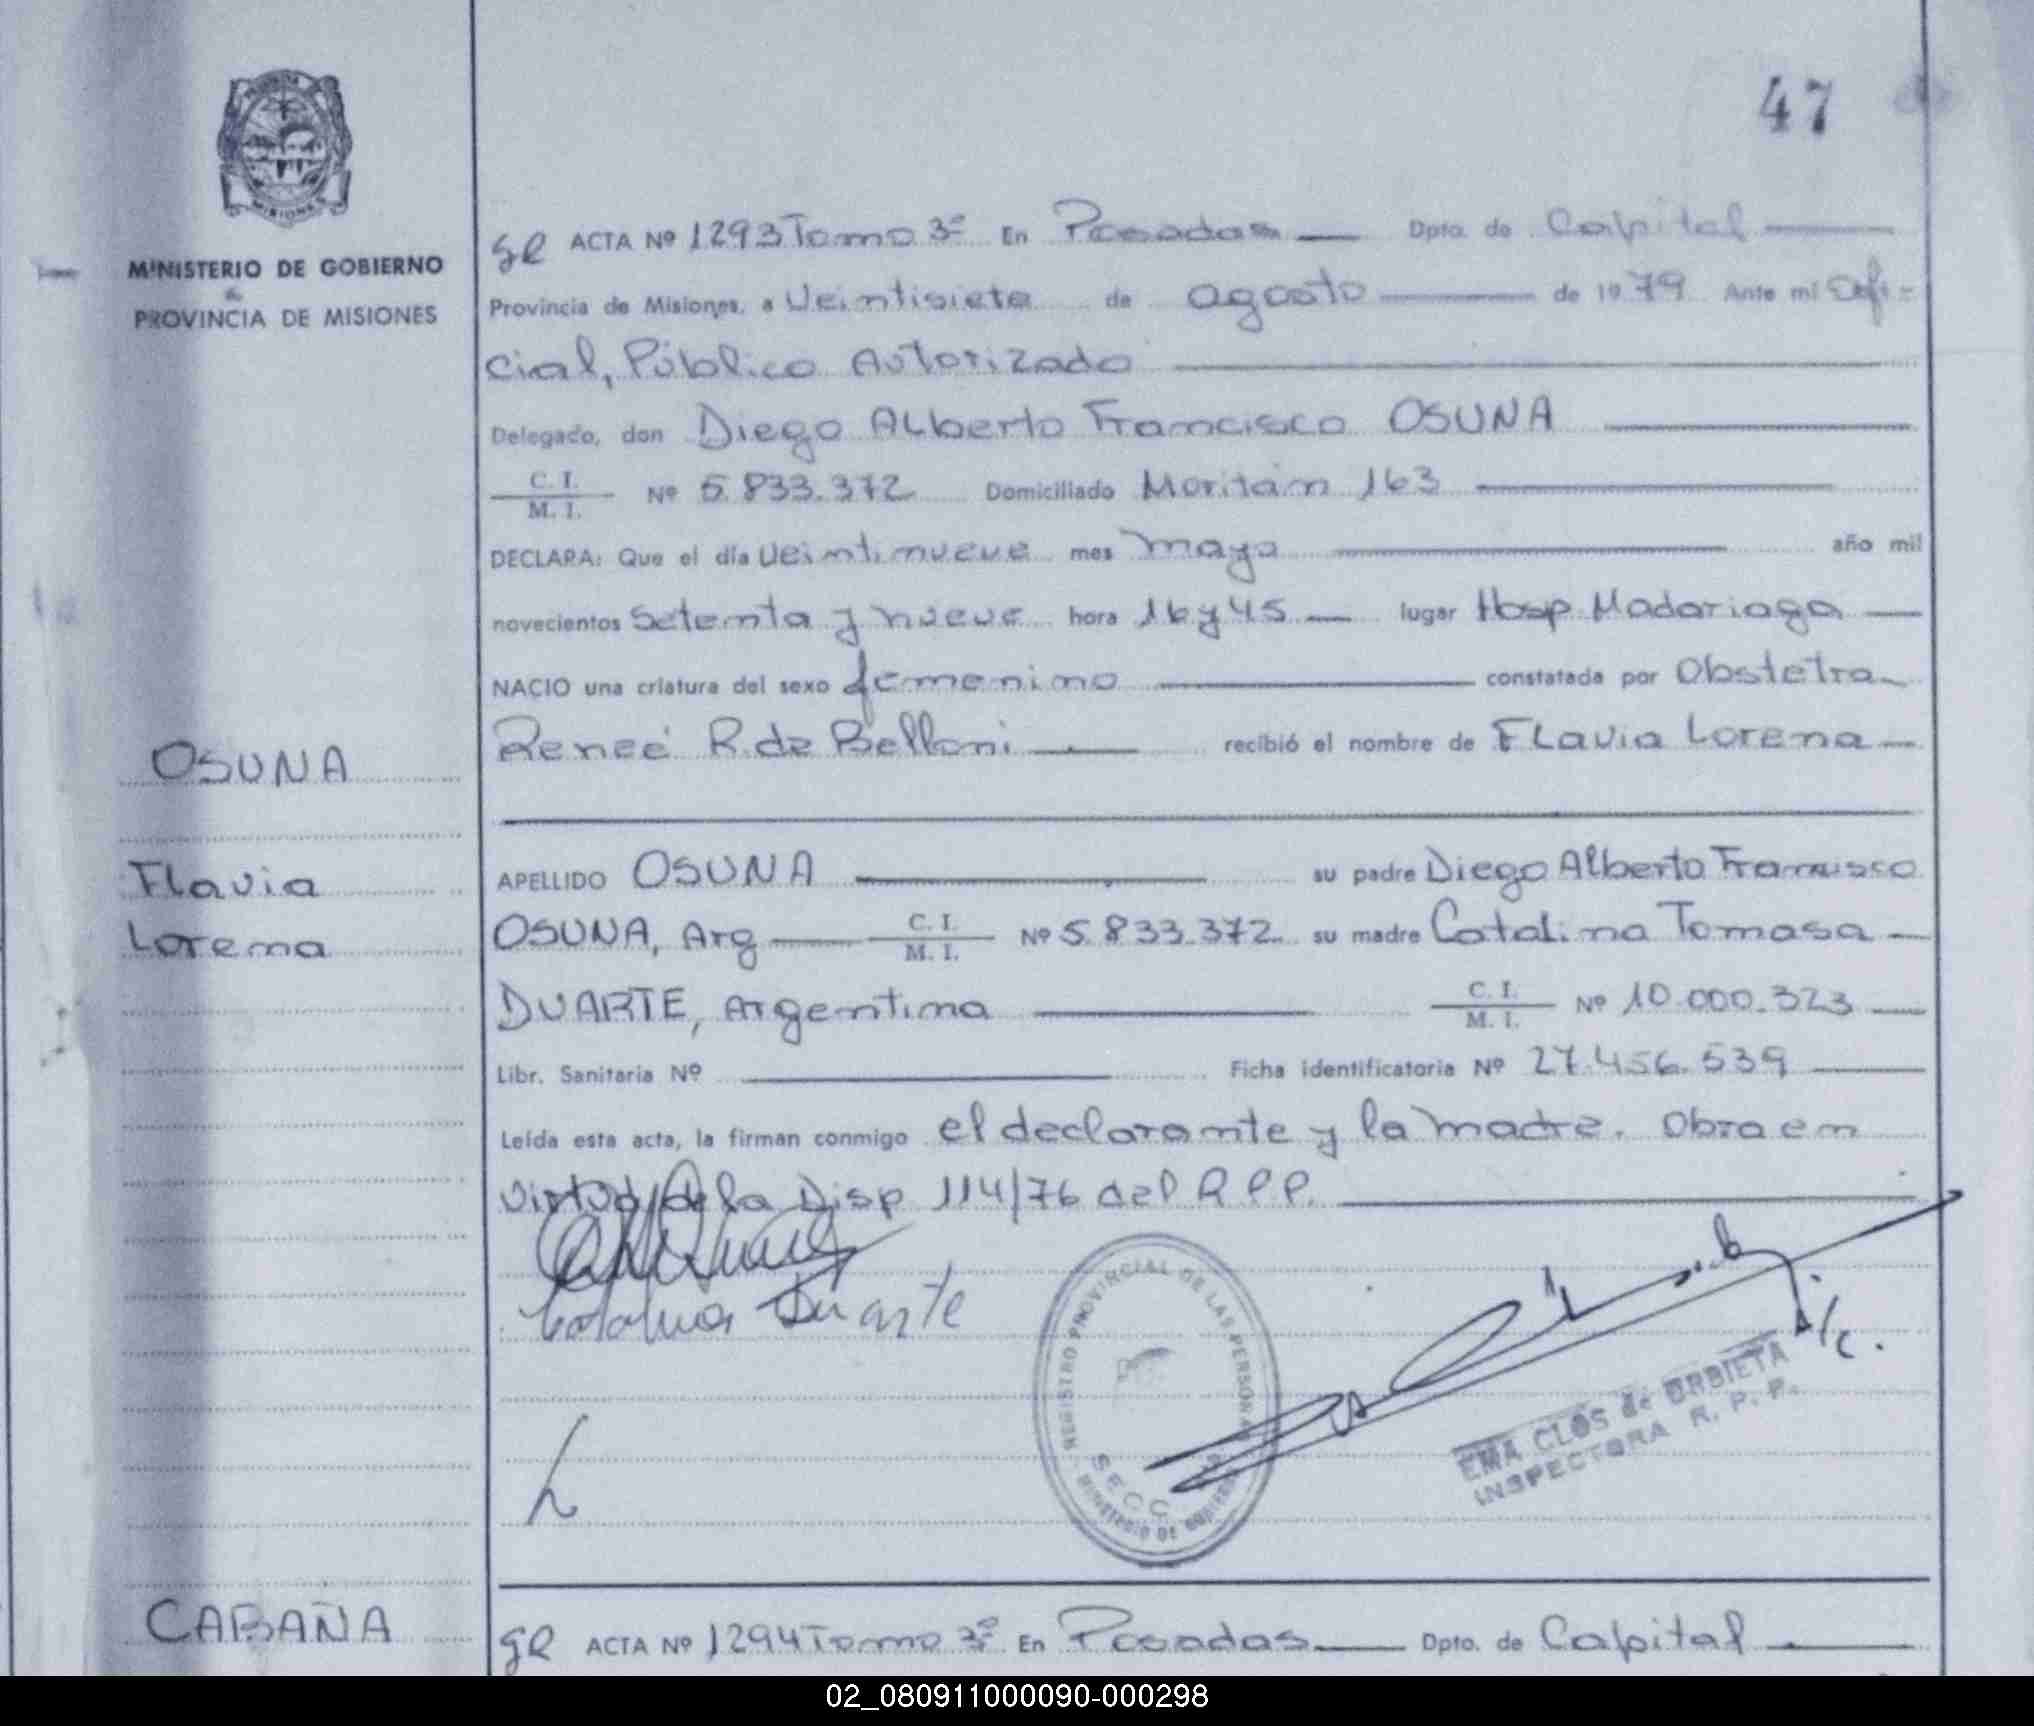 47
PROVINCIA
MISIONES
MINISTERIO DE GOBIERNO
PROVINCIA DE MISIONES
gl ACTA Nº 1293 Tomo 3º En Posadas Dpto. de Capital
Provincia de Misiones, a Veintisiete de agosto de 1979 Ante mí Ofi-
cial, Público Autorizado
Delegado, don Diego Alberto Francisco OSUNA
C. I.
M. I. Nº 5.833.372 Domiciliado Moritán 163
DECLARA: Que el día veintinueve mes mayo año mil
novecientos Setenta y nueve hora 16 y 45 lugar Hosp. Madariaga
NACIO una criatura del sexo femenino constatada por Obstetra
Reneé R. de Belloni recibió el nombre de Flavia Lorena
OSUNA
Flavia
Lorena
APELLIDO OSUNA su padre Diego Alberto Francisco
OSUNA, Arg C. I. M. I. Nº 5.833.372 su madre Catalina Tomasa
DUARTE, Argentina C. I. M. I. Nº 10.000.323
Libr. Sanitaria Nº Ficha identificatoria Nº 27.456.539
Leída esta acta, la firman conmigo el declarante y la madre. Obra en
virtud de la Disp 114/76 del R P P.
Catalina Duarte
REGISTRO PROVINCIAL DE LAS PERSONAS
SECC
MINISTERIO DE GOBIERNO
A/c.
EMA CLOS de URBIETA
INSPECTORA R. P. P.
CABAÑA
gl ACTA Nº 1294 Tomo 3º En Posadas Dpto. de Capital
02_080911000090-000298